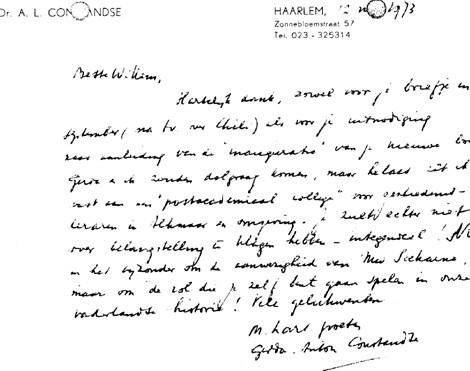 Dr. A. L. CONSTANDSE
HAARLEM, 12 1973
Zonnebloemstraat 57
Tel. 023 - 325314
Beste Willem,
Hartelijk dank, zowel voor je briefje in
september (na tv over Chili) als voor je uitnodiging
naar aanleiding van de "inauguratie" van je nieuwe
Gerda & ik zouden dolgraag komen, maar helaas zit ik
vast aan een "postacademiaal college" voor
leraren in Alkmaar en omgeving. Je zult echter niet
over belangstelling te klagen hebben - integendeel!
in het bijzonder om de aanwezigheid van Mevr
maar om de rol die je zelf bent gaan spelen in onze
vaderlandse historie! Vele gelukwensen
m. hart. groeten
Gerda. Anton Constandse